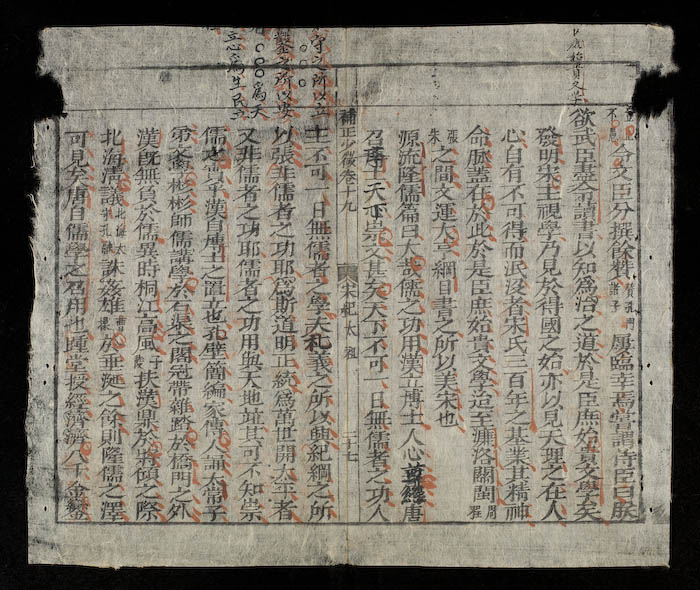 令文臣分撰餘贊屢臨幸焉嘗謂侍臣曰朕
欲武臣盡令讀書以知爲治之道於是臣庶始貴文學矣
發明宋主視學乃見於得國之始亦以見天理之在人
心自有不可得而泯沒者宋氏三百年之基業其精神
命脉蓋在於此於是臣庶始貴文學迨至濂洛關閩周程
張朱之間文運大亨綱目書之所以美宋也
源流隆儒篇曰大哉儒之功用漢立博士人心尊經唐
召天下崇文甚矣天下不可一日無儒者之功人
補正少微卷十九
宋紀太祖
二十七
主不可一日無儒者之學夫礼義之所以興紀綱之所
以張非儒者之功耶爲斯道明正統爲萬世開太平者
又非儒者之功耶儒者之功用與天地並其可不知崇
儒之實乎漢自博士之置立也孔壁簡編家傳人誦太常子
弟彬彬師儒講學於石渠之閣冠帶雜遝於橋門之外
漢旣無負於儒異時桐江高風子陵扶漢鼎於將傾之際
北海淸議北海太守孔融誅姦雄曹操於垂涎之餘則隆儒之澤
可見矣唐自儒學之爲用也踵堂授經濟濟八千金鑾
守之所以立
鑿之所以安
〇〇〇爲天
立心爲生民立
臣庶始貴文學